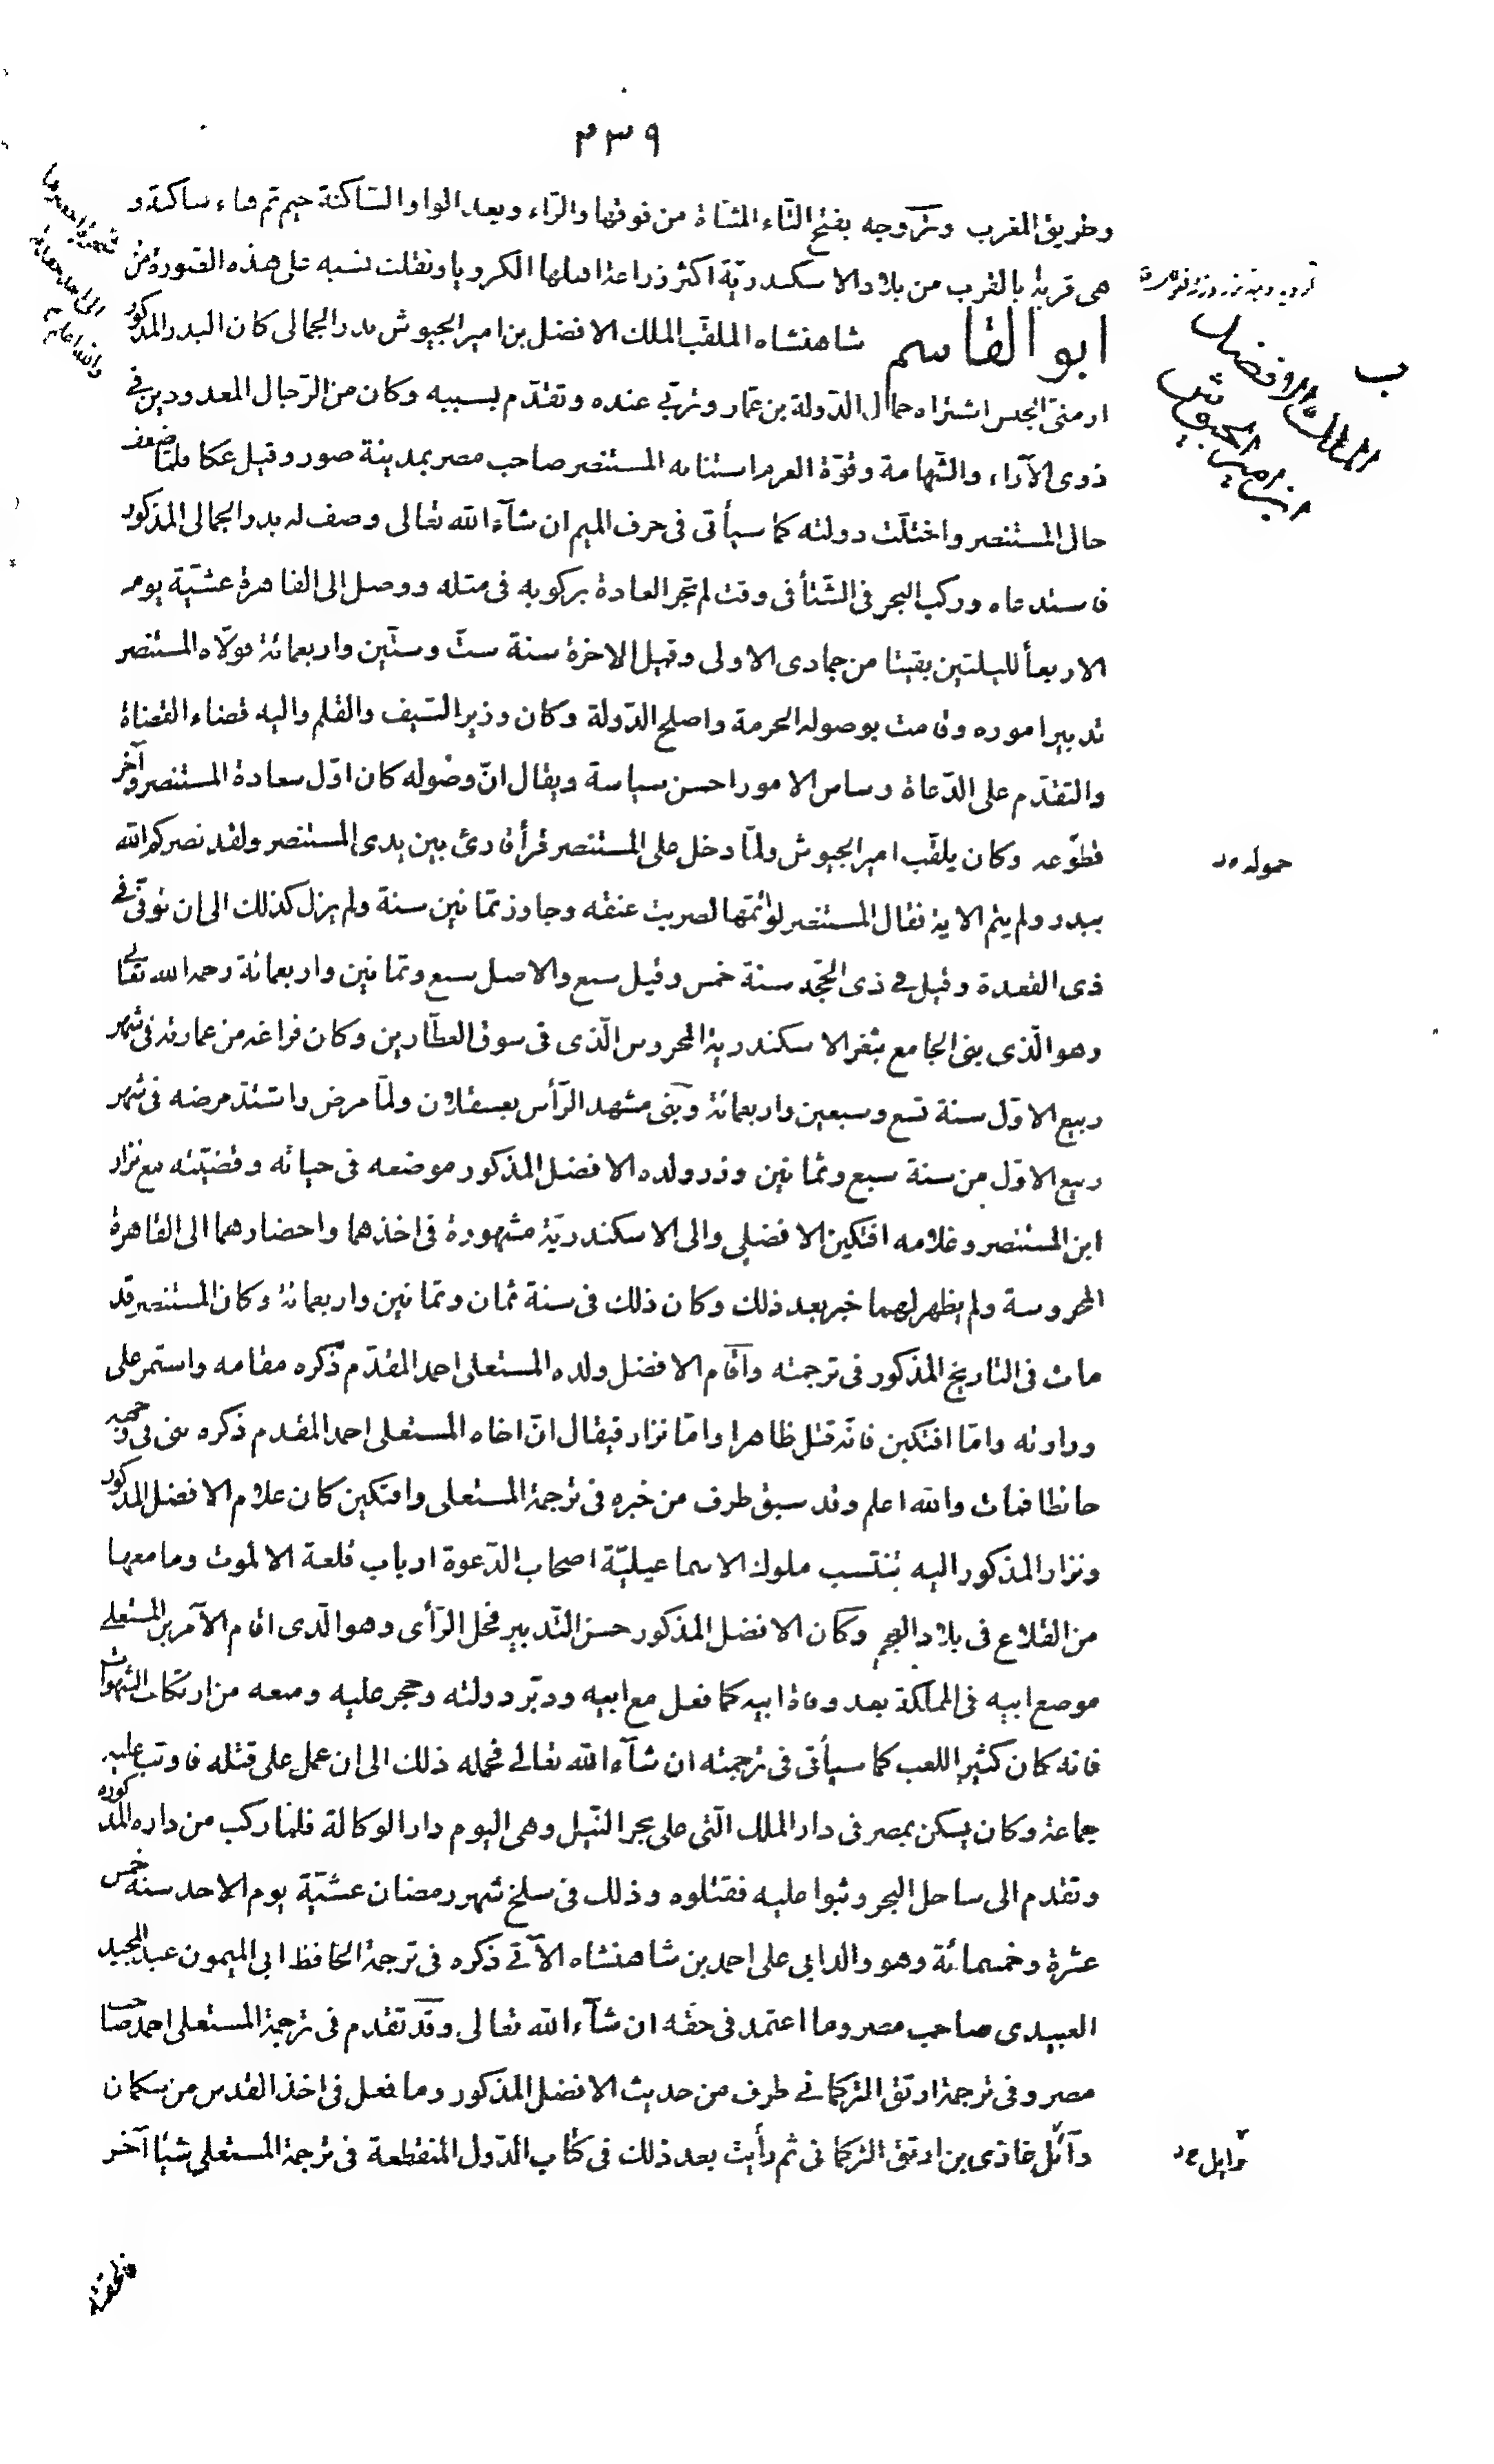 ٢٣٩
وطريق المغرب وتروجه بفتح التاء المثناة من فوقها والراء وبعد الواو الساكنة جيم ثم هاء ساكنة و
هي قرية بالقرب من بلاد الاسكندرية اكثر زراعة اهلها الكرويا ونقلت نسبه على هذه الصورة من
ابو القاسم شاهنشاه الملقب الملك الافضل بن امير الجيوش بدر الجمالى كان البدر المذكور
ارمنى الجنس اشتراه جمال الدولة بن عمار وتربى عنده وتقدم بسببه وكان من الرجال المعدودين فى
ذوى الآراء والشهامة وقوة العزم استنابه المستنصر صاحب مصر بمدينة صور وقيل عكا فلما ضعف
حال المستنصر واختلت دولته كما سيأتى فى حرف الميم ان شآء الله تعالى وصف له بدر الجمالى المذكور
فاستدعاه وركب البحر فى الشتأ فى وقت لم تجر العادة بركوبه فى مثله ووصل الى القاهرة عشية يوم
الاربعأ لليلتين بقيتا من جمادى الاولى وقيل الاخرة سنة ست وستين واربعمائة فولاه المستنصر
تدبير اموره وقامت بوصوله الحرمة واصلح الدولة وكان وزير السيف والقلم واليه قضاء القضاة
والتقدم على الدعاة وساس الامور احسن سياسة ويقال ان وصوله كان اول سعادة المستنصر وآخر
قطوعه وكان يلقب امير الجيوش ولما دخل على المستنصر قرأ قارئ بين يدى المستنصر ولقد نصركم الله
ببدر ولم يتم الاية فقال المستنصر لو اتمها لضربت عنقه وجاوز ثمانين سنة ولم يزل كذلك الى ان توفى فى
ذى القعدة وقيل فى ذى الحجة سنة خمس وقيل سبع والاصل سبع وثمانين واربعمائة رحمه الله تعالى
وهو الذى بنى الجامع بثغر الاسكندرية المحروس الذى فى سوق العطارين وكان فراغه من عمارته فى شهر
ربيع الاول سنة تسع وسبعين واربعمائة وبنى مشهد الرأس بعسقلان ولما مرض واشتد مرضه فى شهر
ربيع الاول من سنة سبع وثمانين وزر ولده الافضل المذكور موضعه فى حياته وقضيته مع نزار
ابن المستنصر وغلامه افتكين الافضلى والى الاسكندرية مشهورة فى اخذهما واحضارهما الى القاهرة
المحروسة ولم يظهر لهما خبر بعد ذلك وكان ذلك فى سنة ثمان وثمانين واربعمائة وكان المستنصر قد
مات فى التاريخ المذكور فى ترجمته واقام الافضل ولده المستعلى احمد المقدم ذكره مقامه واستمر على
وزارته واما افتكين فانه قتل ظاهرا واما نزار فيقال ان اخاه المستعلى احمد المقدم ذكره بنى فى وجهه
حائطا فمات والله اعلم وقد سبق طرف من خبره فى ترجمة المستعلى وافتكين كان غلام الافضل المذكور
ونزار المذكور اليه تنتسب ملوك الاسماعيلية اصحاب الدعوة ارباب قلعة الالموت وما معها
من القلاع فى بلاد العجم وكان الافضل المذكور حسن التدبير فحل الرأى وهو الذى اقام الآمر بن المستعلى
موضع ابيه فى المملكة بعد وفاة ابيه كما فعل مع ابيه ودبر دولته وحجر عليه ومنعه من ارتكاب الشهوات
فانه كان كثير اللعب كما سيأتى فى ترجمته ان شآء الله تعالى فحمله ذلك الى ان عمل على قتله فاوثب عليه
جماعة وكان يسكن بمصر فى دار الملك التى على بحر النيل وهى اليوم دار الوكالة فلما ركب من داره المذكوره
وتقدم الى ساحل البحر وثبوا عليه فقتلوه وذلك فى سلخ شهر رمضان عشية يوم الاحد سنة خمس
عشرة وخمسمائة وهو والد ابى على احمد بن شاهنشاه الآتى ذكره فى ترجمة الحافظ ابى الميمون عبد المجيد
العبيدى صاحب مصر وما اعتمد فى حقه ان شآء الله تعالى وقد تقدم فى ترجمة المستعلى احمد صاحب
مصر وفى ترجمة ارتق التركمانى طرف من حديث الافضل المذكور وما فعل فى اخذ القدس من سكمان
وآئل غازى بن ارتق التركمانى ثم رأيت بعد ذلك فى كتاب الدول المنقطعة فى ترجمة المستعلى شيئا آخر
ب
الملك الافضل
ابن امير الجيوش
حموله
وايل